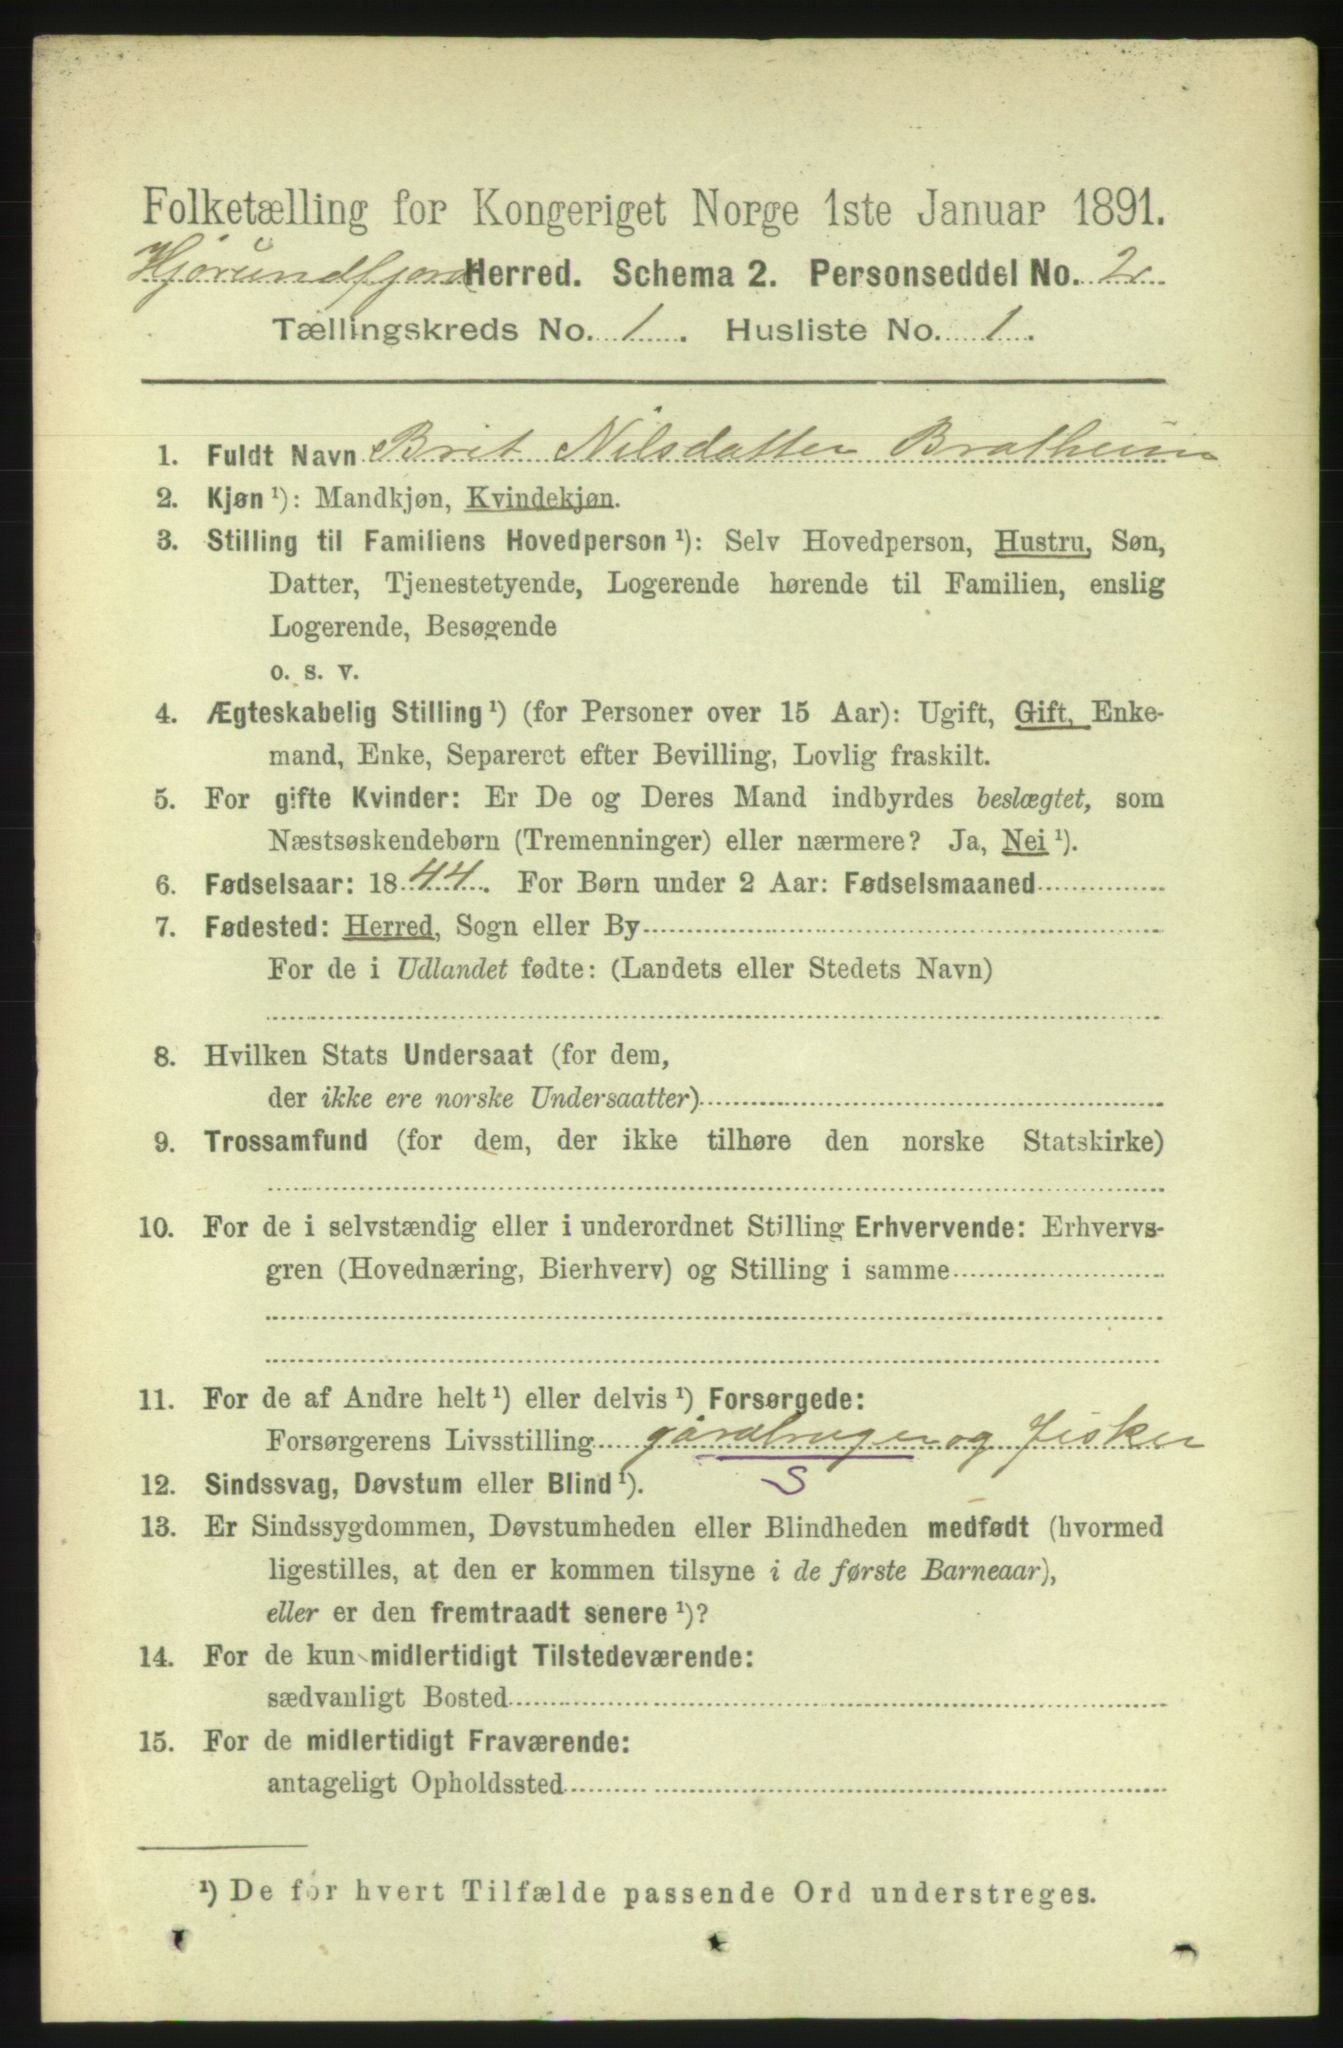 Folketælling for Kongeriget Norge 1ste Januar 1891.
Hjørundfjord Herred. Schema 2. Personseddel No. 2
Tællingskreds No. 1. Husliste No. 1.
1. Fuldt Navn Brit Nilsdatter Bratheim
2. Kjøn ¹): Mandkjøn, Kvindekjøn.
3. Stilling til Familiens Hovedperson ¹): Selv Hovedperson, Hustru, Søn,
Datter, Tjenestetyende, Logerende hørende til Familien, enslig
Logerende, Besøgende
o. s. v.
4. Ægteskabelig Stilling ¹) (for Personer over 15 Aar): Ugift, Gift, Enke-
mand, Enke, Separeret efter Bevilling, Lovlig fraskilt.
5. For gifte Kvinder: Er De og Deres Mand indbyrdes beslægtet, som
Næstsøskendebørn (Tremenninger) eller nærmere? Ja, Nei ¹).
6. Fødselsaar: 1844. For Børn under 2 Aar: Fødselsmaaned
7. Fødested: Herred, Sogn eller By
For de i Udlandet fødte: (Landets eller Stedets Navn)
8. Hvilken Stats Undersaat (for dem,
der ikke ere norske Undersaatter)
9. Trossamfund (for dem, der ikke tilhøre den norske Statskirke)
10. For de i selvstændig eller i underordnet Stilling Erhvervende: Erhvervs-
gren (Hovednæring, Bierhverv) og Stilling i samme
11. For de af Andre helt ¹) eller delvis ¹) Forsørgede:
Forsørgerens Livsstilling gårdbruger og Fisker
12. Sindssvag, Døvstum eller Blind ¹). S
13. Er Sindssygdommen, Døvstumheden eller Blindheden medfødt (hvormed
ligestilles, at den er kommen tilsyne i de første Barneaar),
eller er den fremtraadt senere ¹)?
14. For de kun midlertidigt Tilstedeværende:
sædvanligt Bosted
15. For de midlertidigt Fraværende:
antageligt Opholdssted
¹) De for hvert Tilfælde passende Ord understreges.